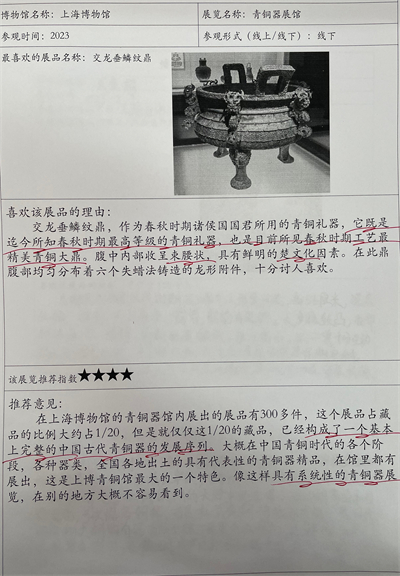 博物馆名称：上海博物馆
展览名称：青铜器展馆
参观时间：2023
参观形式（线上/线下）：线下
最喜欢的展品名称：交龙垂鳞纹鼎
喜欢该展品的理由：
交龙垂鳞纹鼎，作为春秋时期诸侯国国君所用的青铜礼器，它既是
迄今所知春秋时期最高等级的青铜礼器，也是目前所见春秋时期工艺最
精美青铜大鼎。腹中内部收呈束腰状，具有鲜明的楚文化因素。在此鼎
腹部均匀分布着六个失蜡法铸造的龙形附件，十分讨人喜欢。
该展览推荐指数★★★★
推荐意见：
在上海博物馆的青铜器馆内展出的展品有300多件，这个展品占藏
品的比例大约占1/20，但是就仅仅这1/20的藏品，已经构成了一个基本
上完整的中国古代青铜器的发展序列。大概在中国青铜时代的各个阶
段，各种器类，全国各地出土的具有代表性的青铜器精品，在馆里都有
展出，这是上博青铜馆最大的一个特色。像这样具有系统性的青铜器展
览，在别的地方大概不容易看到。